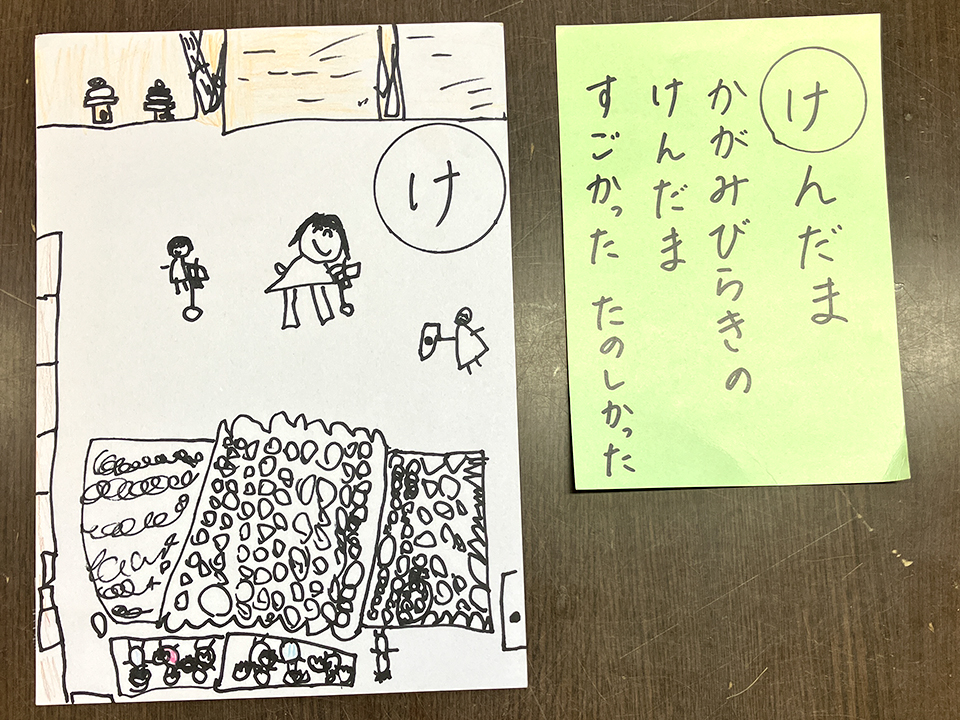 け
けんだま
かがみびらきの
けんだま
すごかった たのしかった